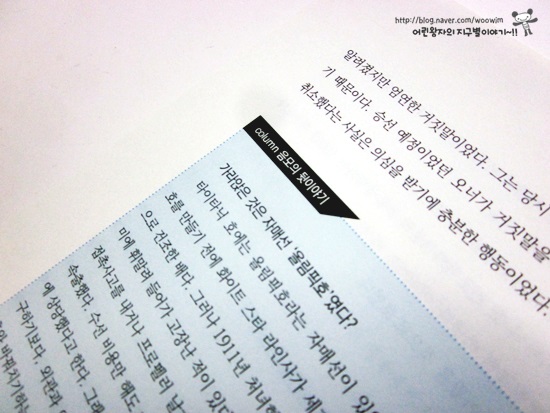 http://blog.naver.com/woowim
어린왕자의 지구별이야기~!!
알려졌지만 엄연한 거짓말이었다. 그는 당시
기 때문이다. 승선 예정이었던 오너가 거짓말을
취소했다는 사실은 의심을 받기에 충분한 행동이었다.
column 음모의 뒷이야기
가라앉은 것은 자매선 '올림픽호'였다?
타이타닉 호에는 올림픽호라는 자매선이 있
호를 만들기 전에 화이트 스타 라인사가 세
으로 건조한 배다. 그러나 1911년 처녀항
미에 휘말려 들어가 고장난 적이 있다
접촉사고를 내거나 프로펠러 날
속출했다. 수선 비용만 해도
에 상당했다고 한다. 그래
구하기보다. 외관과